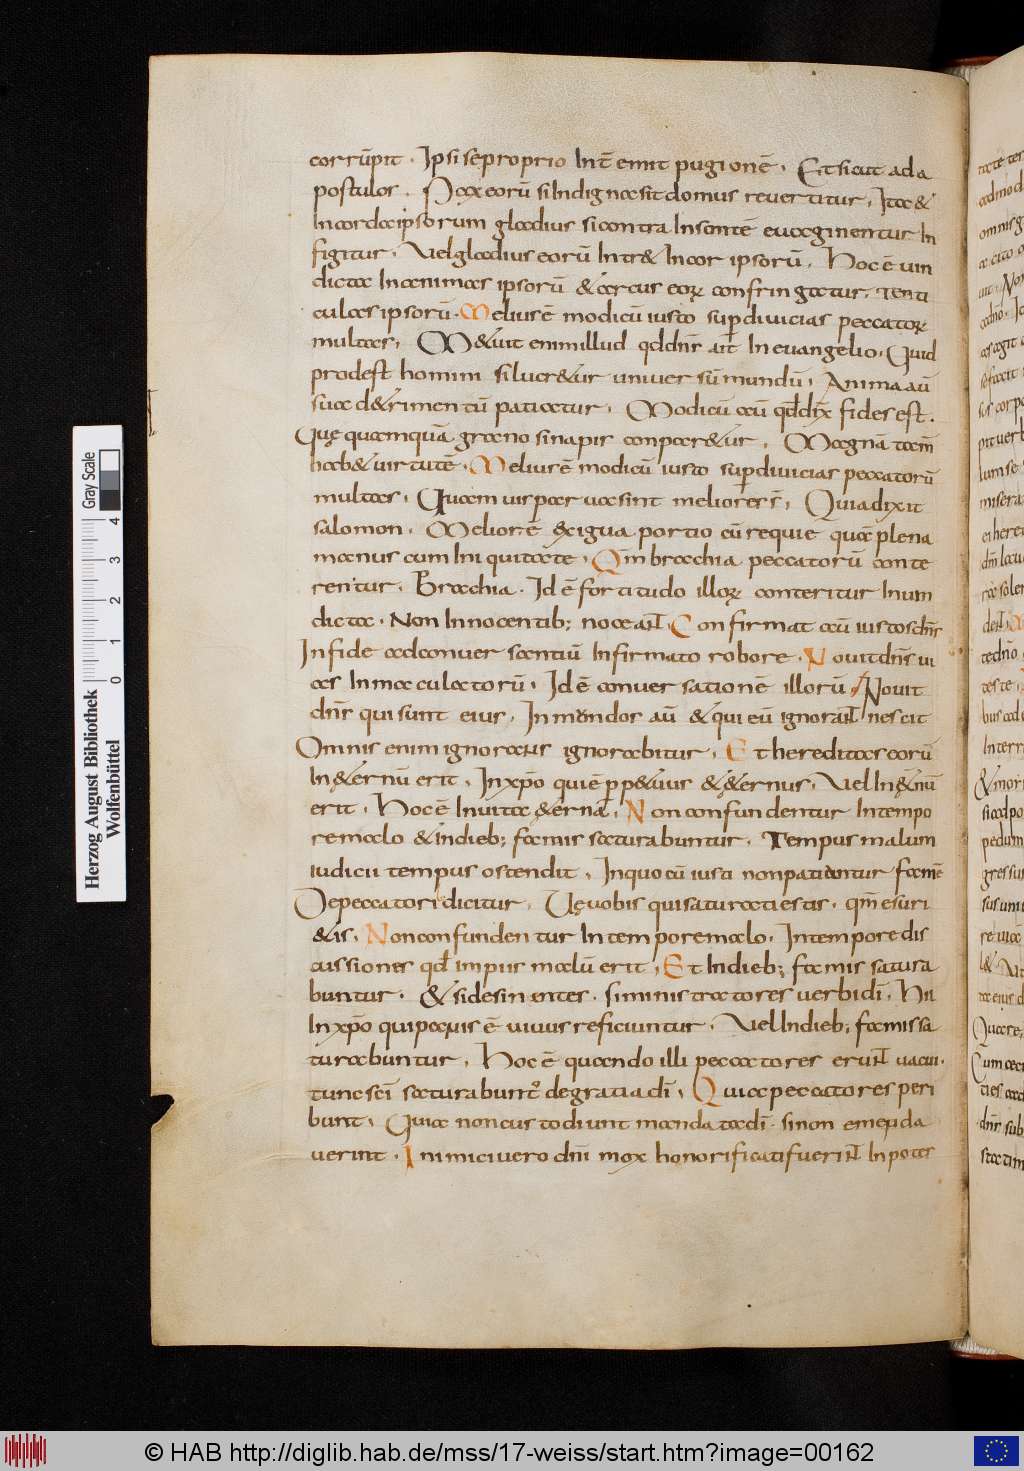 corrūpit . Ipsi seproprio Int̄ emit pugionē . Et sicut ad a
postulos . Pax eorū siIndigna sit domus revertitur , Ita &
Incordaipsorum gladius sicontra Insontē evaginentur In
figitur . Vel gladius eorū Intr& Incor ipsorū . Hoc ē vin
dicta Inanimas ipsorū & arcus eoꝝ confringatur . Tenta
culas ipsorū . Melius ē modicū iusto sup̄ divicias peccatoꝝ
multas , M&uit enim illud qd dn̄r ait̄ In evangelio . Quid
prodest homini si lucr&ur univer sū mundū , Anima aū
sua d&rimentū patiatur . Modicū aū qd̄ dix̄ fides est .
Quę quamquā grano sinapis conpar&ur , Magnā tam̄
hab& virtutē . Melius ē modicū iusto sup̄ divicias peccatorū
multas , Quam vis parva sint meliores s̄ , Quia dixit
salomon . Melior ē exigua portio cū requie quā plena
manus cum Iniquitate . Qm̄ brachia peccatorū conte
rentur . Brachia . Id ē fortitudo illoꝝ conteritur Inum
dicta . Non Innocentib; noceant . Confirmat aū iustos dn̄r
Infide adconversantiū Infirmato robore . Novit dn̄s vi
as Inmaculatorū . Id ē conversationē illorū Novit
dn̄r qui sunt eius . Inmundos aū & qui eū ignorant nescit
Omnis enim ignorans ignorabitur , Et hereditas eorū
In &ernū erit . In xp̄o qui ē p p&uus & &ernus . Vel In &nū
erit . Hoc ē Invita &erna , Non confundentur Intempo
remalo & Indieb; famis saturabuntur . Tempus malum
iudicii tempus ostendit , Inquo cū iusti nonpatiuntur famē
De peccatori dicitur . Vę vobis qui saturati estis . qm̄ esuri
&is . Nonconfundentur In tempore malo . In tempore dis
cussionis qd̄ impiis malū erit , Et Indieb; famis satura
buntur . & sidesinentes . siministratores verbi dī . Hii
In xp̄o qui panis ē vivus reficiuntur . Vel Indieb; famis sa
turabuntur , Hoc ē quando illi peccatores erunt vacui .
tunc sc̄i saturabunt̄ degratia dī , Quia peccatores peri
bunt . Quia non custodiunt mandata dī . sinon emenda
verint . Inimici vero dn̄i mox honorificati fuerint In potes
Herzog August Bibliothek
Wolfenbüttel
Gray Scale
0 1 2 3 4
© HAB http://diglib.hab.de/mss/17-weiss/start.htm?image=00162